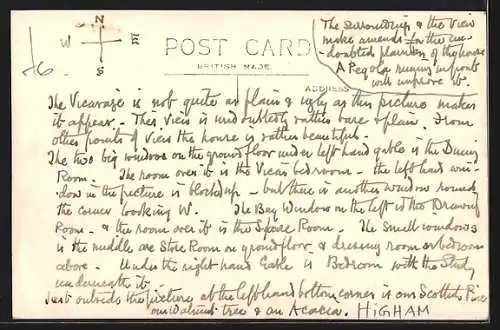 N
W E
S
/6.
POST CARD
BRITISH MADE
ADDRESS
The Surroundings & the View
make amends for the un-
doubted plainness of the house
A Pegola running in front
will improve it.
The Vicarage is not quite as plain & ugly as this picture makes
it appear. This View is undoubtedly rather bare & plain. From
other points of view the house is rather beautiful.
The two big windows on the ground floor under left hand gable is the Dining
Room. The room over it is the Vicar's bedroom - the left hand win-
dow in the picture is blocked up - but there is another window round
the corner looking W. The Bay Window on the left is the Drawing
Room - & the room over it is the Spare Room. The small windows
in the middle are Store Room on ground floor & dressing room or bedroom
above. Under the right hand Gable is Bedroom with the Study
underneath it
Just outside the picture at the left hand bottom corner is our Scottish
our Walnut tree & an Acacia. HIGHAM